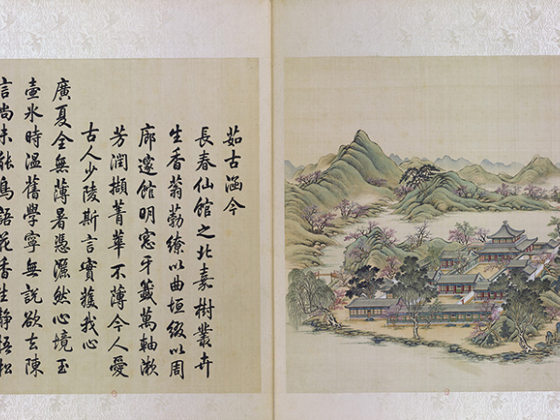 茹古涵今
長春仙館之北嘉樹叢卉
生香蓊勃繚以曲垣綴以周
廊邃館明窓牙籤萬軸漱
芳潤擷菁華不薄今人愛
古人少陵斯言實獲我心
廣夏全無薄暑憑灑然心境玉
壺氷時溫舊學寧無說欲去陳
言尚未能鳥語花香生靜悟松